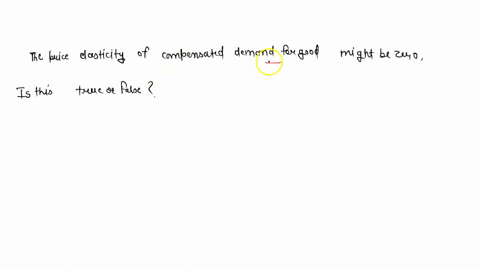 The price elasticity of compensated demand for good might be zero,
Is this true or false?